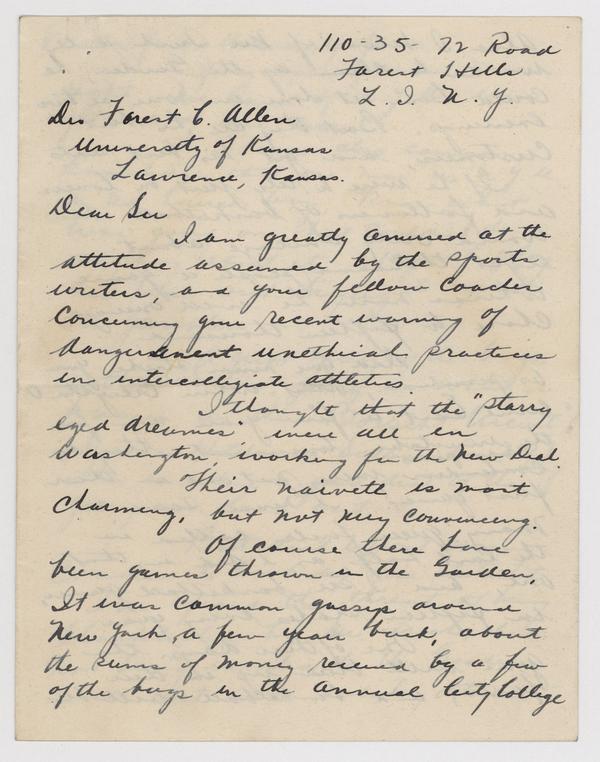 110-35-72 Road
Forest Hills
L. I. N. Y.
Dr. Forest C. Allen
University of Kansas
Lawrence, Kansas.
Dear Sir
I am greatly amused at the
attitude assumed by the sports
writers, and your fellow coaches
concerning your recent warning of
danger anent unethical practices
in intercollegiate athletics.
I thought that the "starry
eyed dreamers" were all in
Washington, working for the New Deal.
Their naiveté is most
charming, but not very convincing.
Of course there have
been games thrown in the Garden,
It was common gossip around
New York, a few years back, about
the sums of money received by a few
of the boys in the annual City College